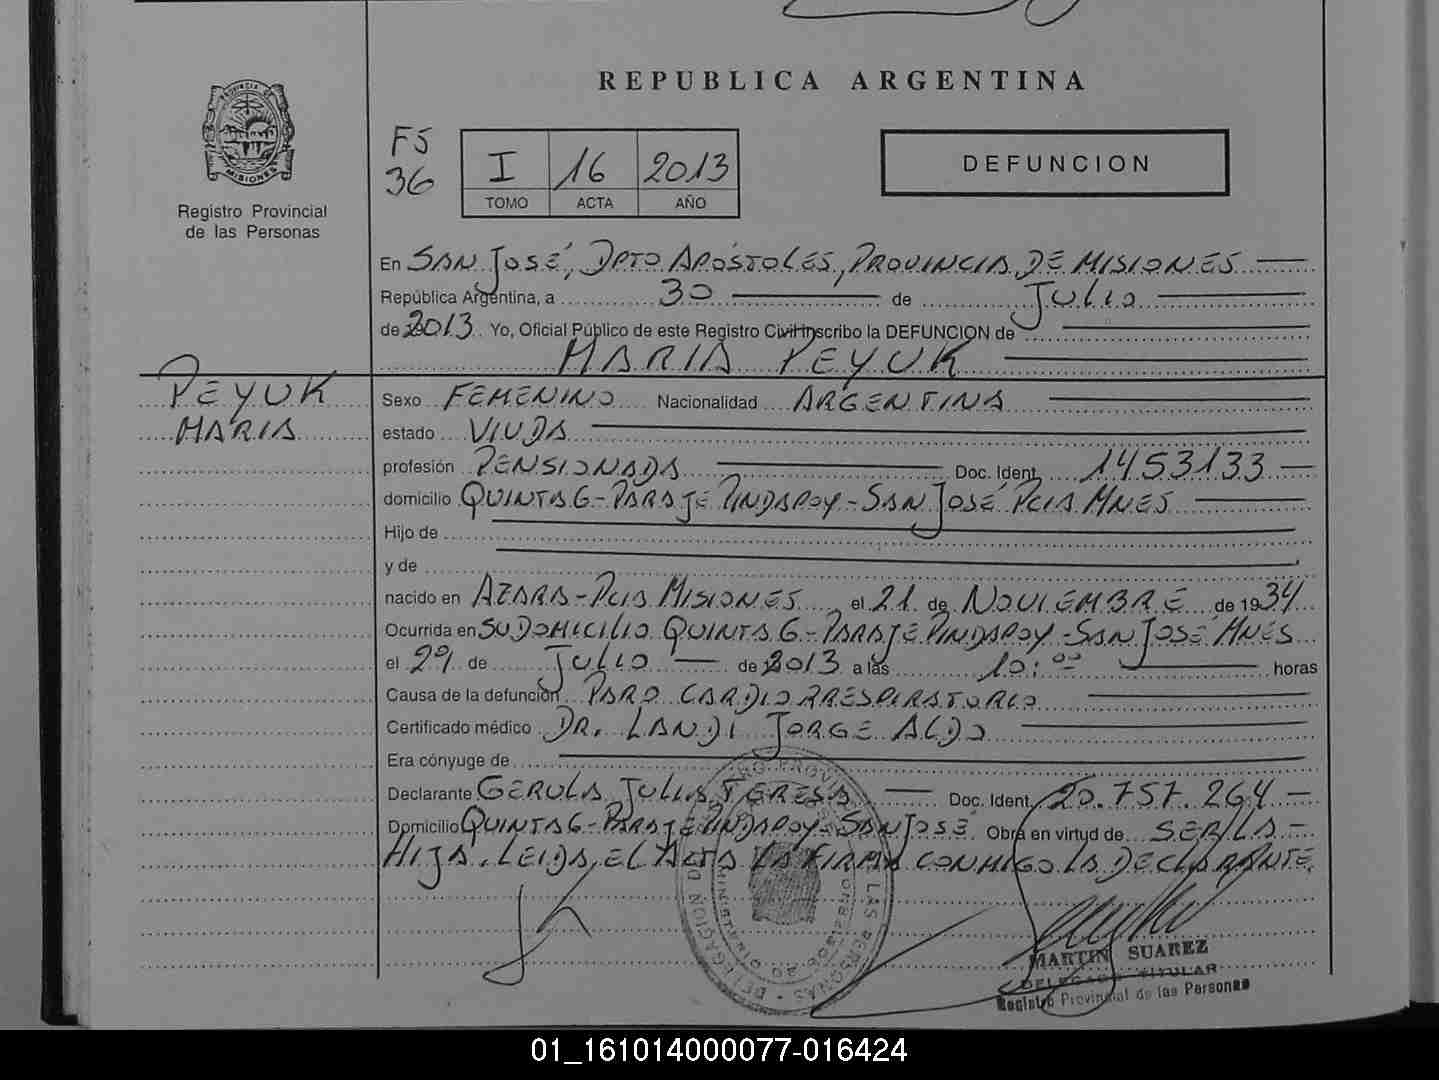 REPUBLICA ARGENTINA
PROVINCIA DE
MISIONES
Registro Provincial
de las Personas
FS
36
I 16 2013
TOMO ACTA AÑO
DEFUNCION
En SAN JOSÉ, DPTO APÓSTOLES, PROVINCIA DE MISIONES
República Argentina, a 30 de JULIO
de 2013 Yo, Oficial Público de este Registro Civil inscribo la DEFUNCION de
MARIA PEYUK
PEYUK
MARIA
Sexo FEMENINO Nacionalidad ARGENTINA
estado VIUDA
profesión PENSIONADA Doc. Ident. 1453133
domicilio QUINTA 6 - PARAJE PINDAPOY - SAN JOSÉ PCIA MNES
Hijo de
y de
nacido en AZARA - PCIA MISIONES el 21 de NOVIEMBRE de 1934
Ocurrida en SU DOMICILIO QUINTA 6 - PARAJE PINDAPOY - SAN JOSÉ MNES
el 29 de JULIO de 2013 a las 10:00 horas
Causa de la defunción PARO CARDIORRESPIRATORIO
Certificado médico DR. LANDI JORGE ALDO
Era cónyuge de
Declarante GERULA JULIA TERESA Doc. Ident. 20.757.264
Domicilio QUINTA 6 - PARAJE PINDAPOY - SAN JOSÉ Obra en virtud de SER LA
HIJA. LEIDA EL ACTA LA FIRMA CONMIGO LA DECLARANTE
MARTIN SUAREZ
DELEGADO TITULAR
Registro Provincial de las Personas
01_161014000077-016424